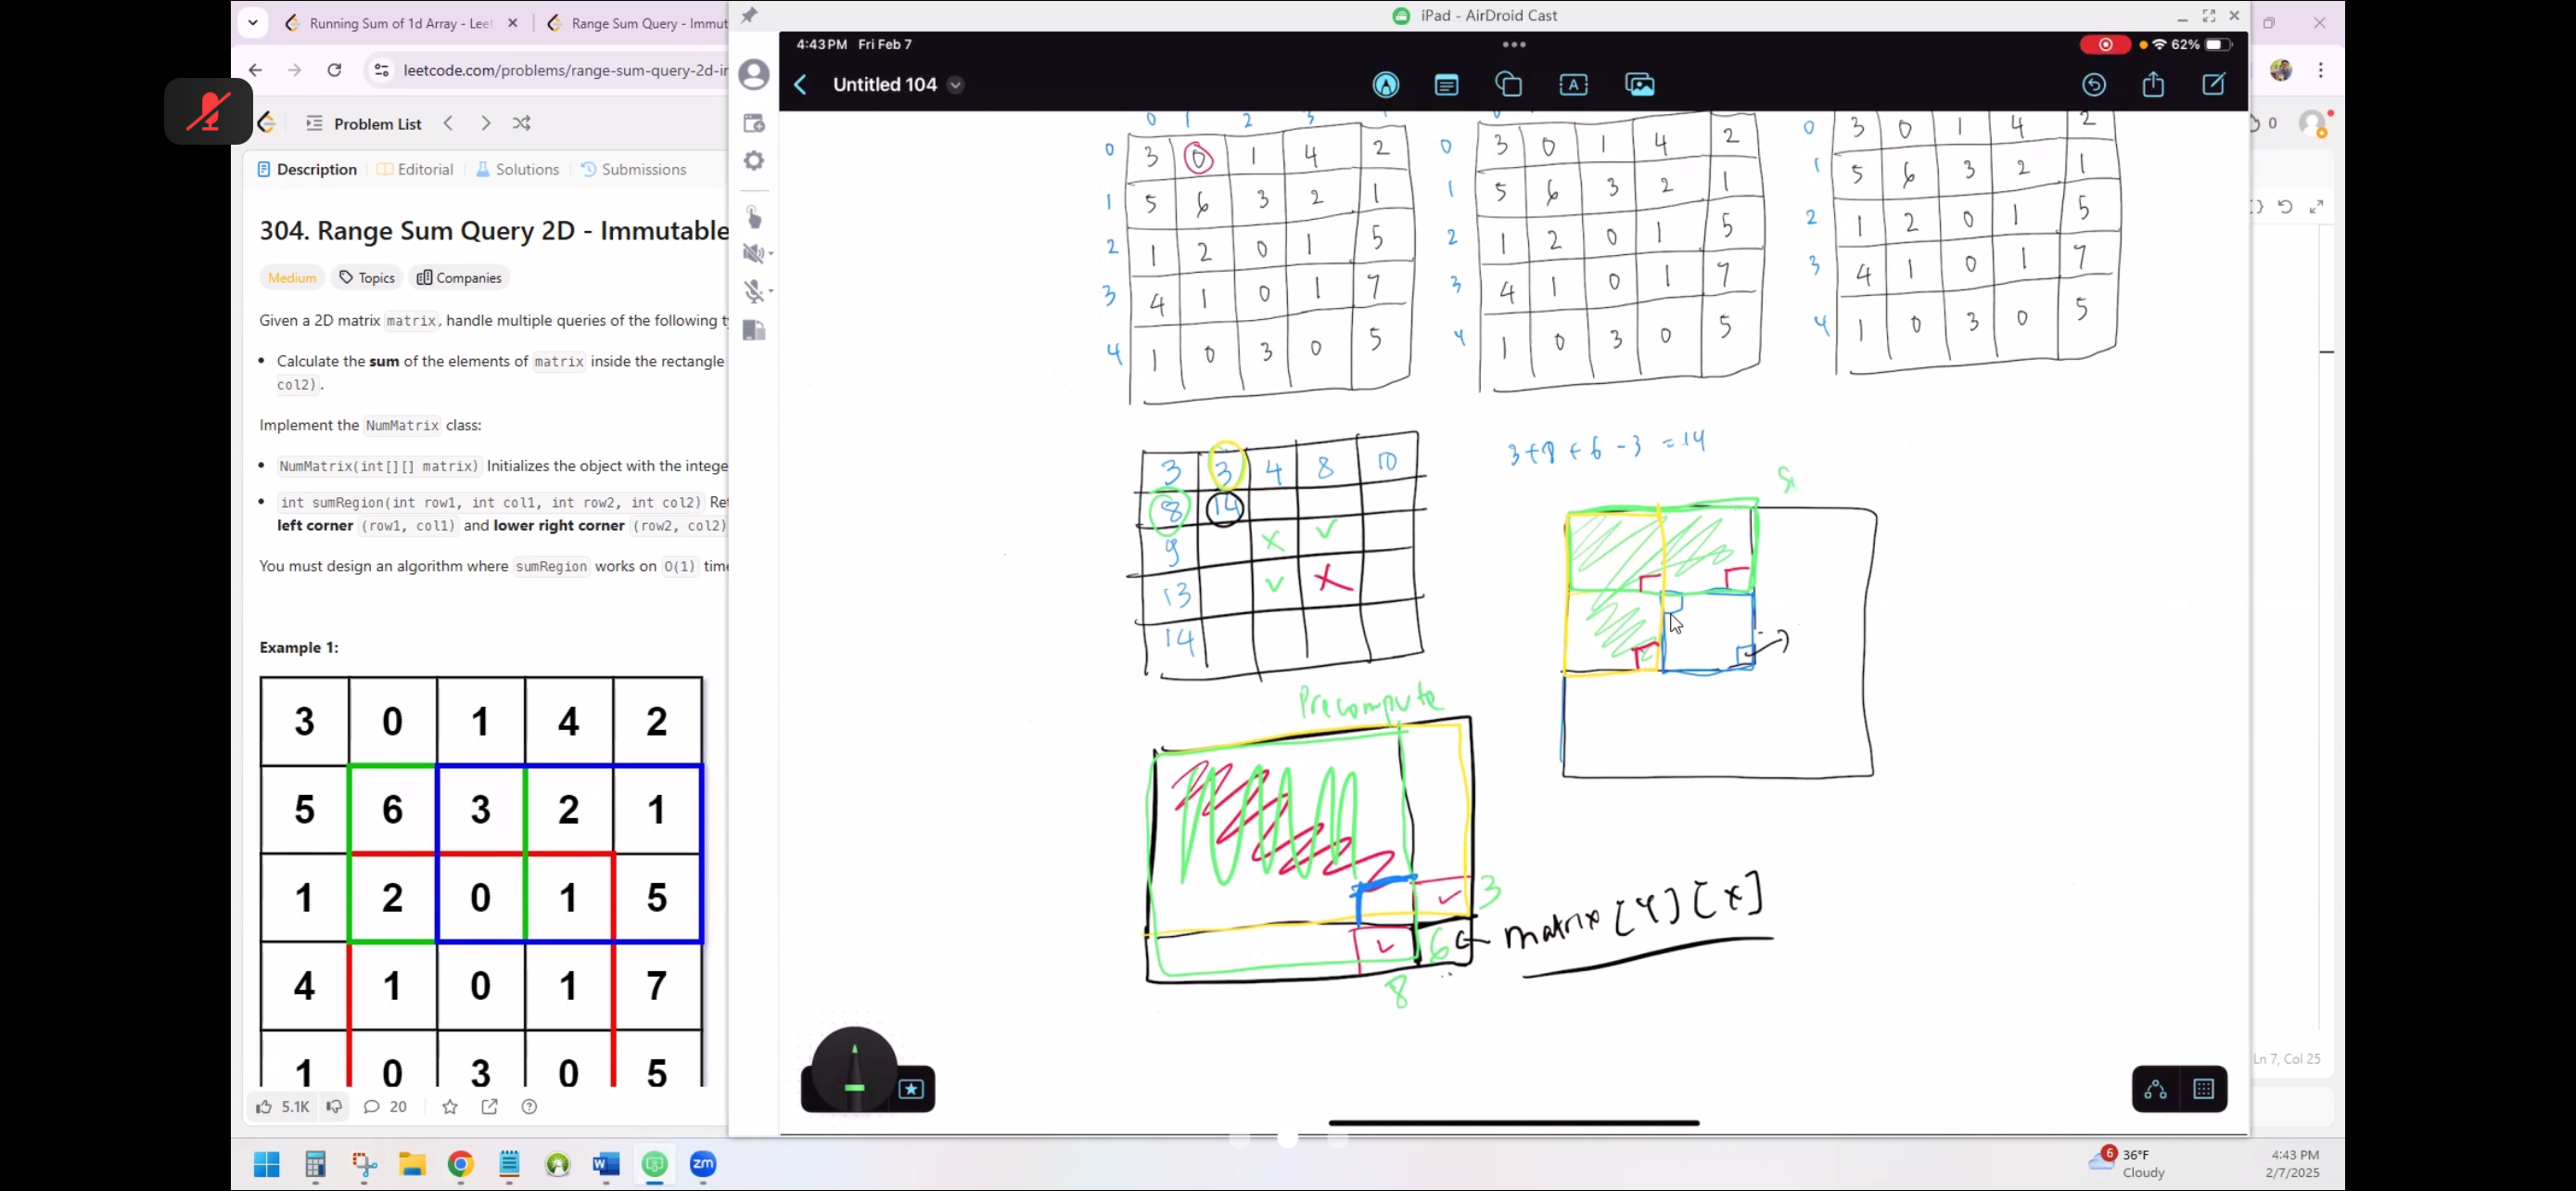 Running Sum of 1d Array - Leet
Range Sum Query - Immut
iPad - AirDroid Cast
leetcode.com/problems/range-sum-query-2d-in
4:43 PM Fri Feb 7
62%
Untitled 104
Problem List
0
Description
Editorial
Solutions
Submissions
304. Range Sum Query 2D - Immutable
Medium
Topics
Companies
Given a 2D matrix matrix, handle multiple queries of the following t
• Calculate the sum of the elements of matrix inside the rectangle
col2).
Implement the NumMatrix class:
• NumMatrix(int[][] matrix) Initializes the object with the intege
• int sumRegion(int row1, int col1, int row2, int col2) Re
left corner (row1, col1) and lower right corner (row2, col2)
You must design an algorithm where sumRegion works on O(1) time
Example 1:
3 0 1 4 2
5 6 3 2 1
1 2 0 1 5
4 1 0 1 7
1 0 3 0 5
5.1K
20
0 1 2 3
0 3 0 1 4 2
1 5 6 3 2 1
2 1 2 0 1 5
3 4 1 0 1 7
4 1 0 3 0 5
0 3 0 1 4 2
1 5 6 3 2 1
2 1 2 0 1 5
3 4 1 0 1 7
4 1 0 3 0 5
0 3 0 1 4 2
1 5 6 3 2 1
2 1 2 0 1 5
3 4 1 0 1 7
4 1 0 3 0 5
3 3 4 8 10
8 14
9
13
14
3+8+6-3 = 14
Precompute
3
6
8
matrix [Y][X]
Ln 7, Col 25
6
36°F
Cloudy
4:43 PM
2/7/2025
zm